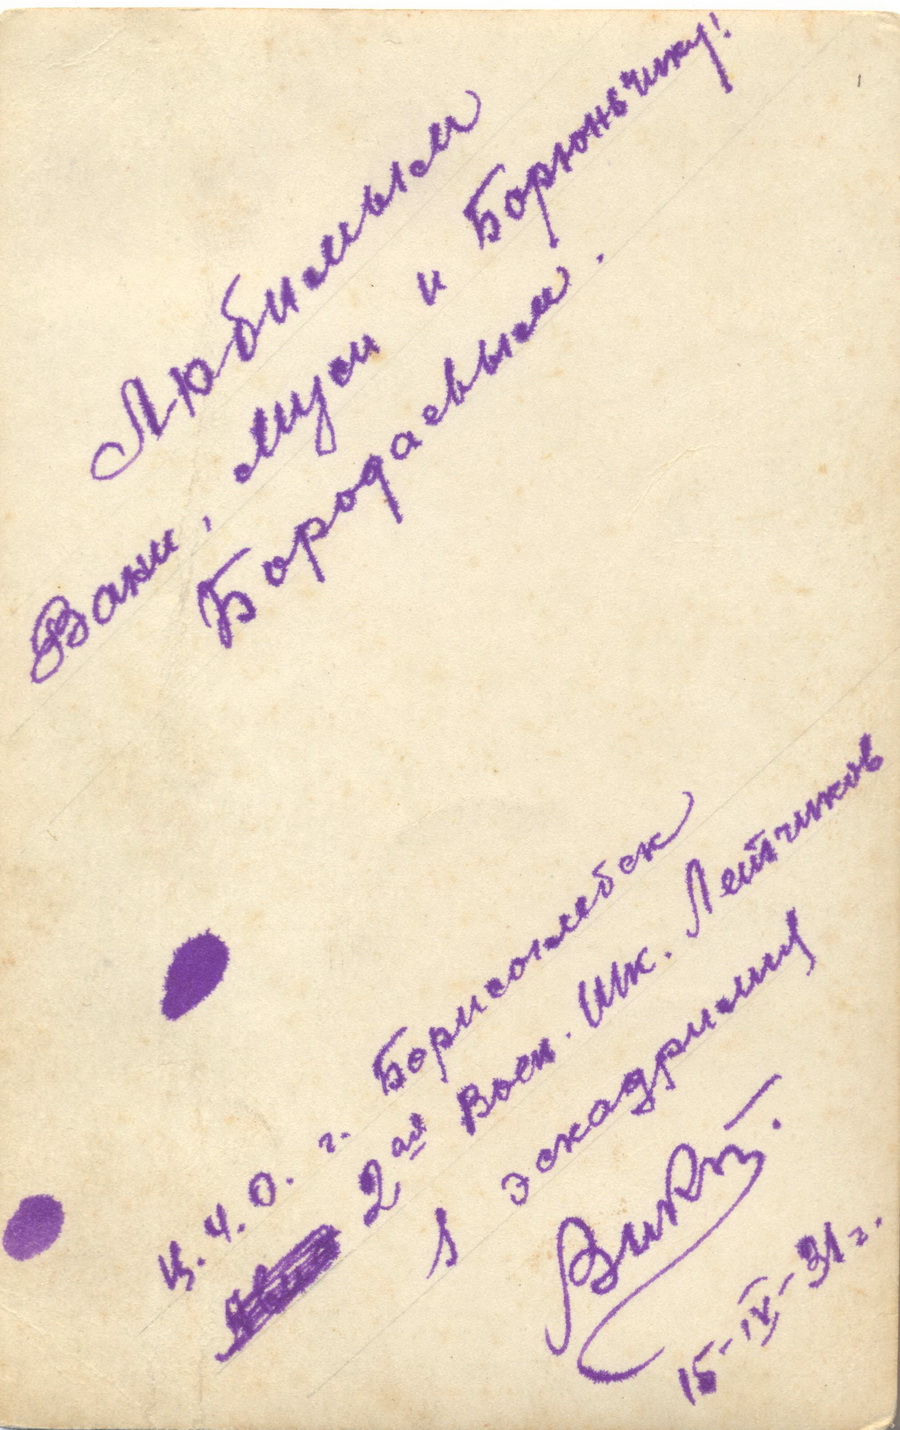 Любимым
Вани, Муси и Борюньчику!
Бородаевым.
Ц.Ч.О. г. Борисоглебск
2ая Воен. Шк. Летчиков
1 эскадрилия
Викт.
15-IV-31 г.